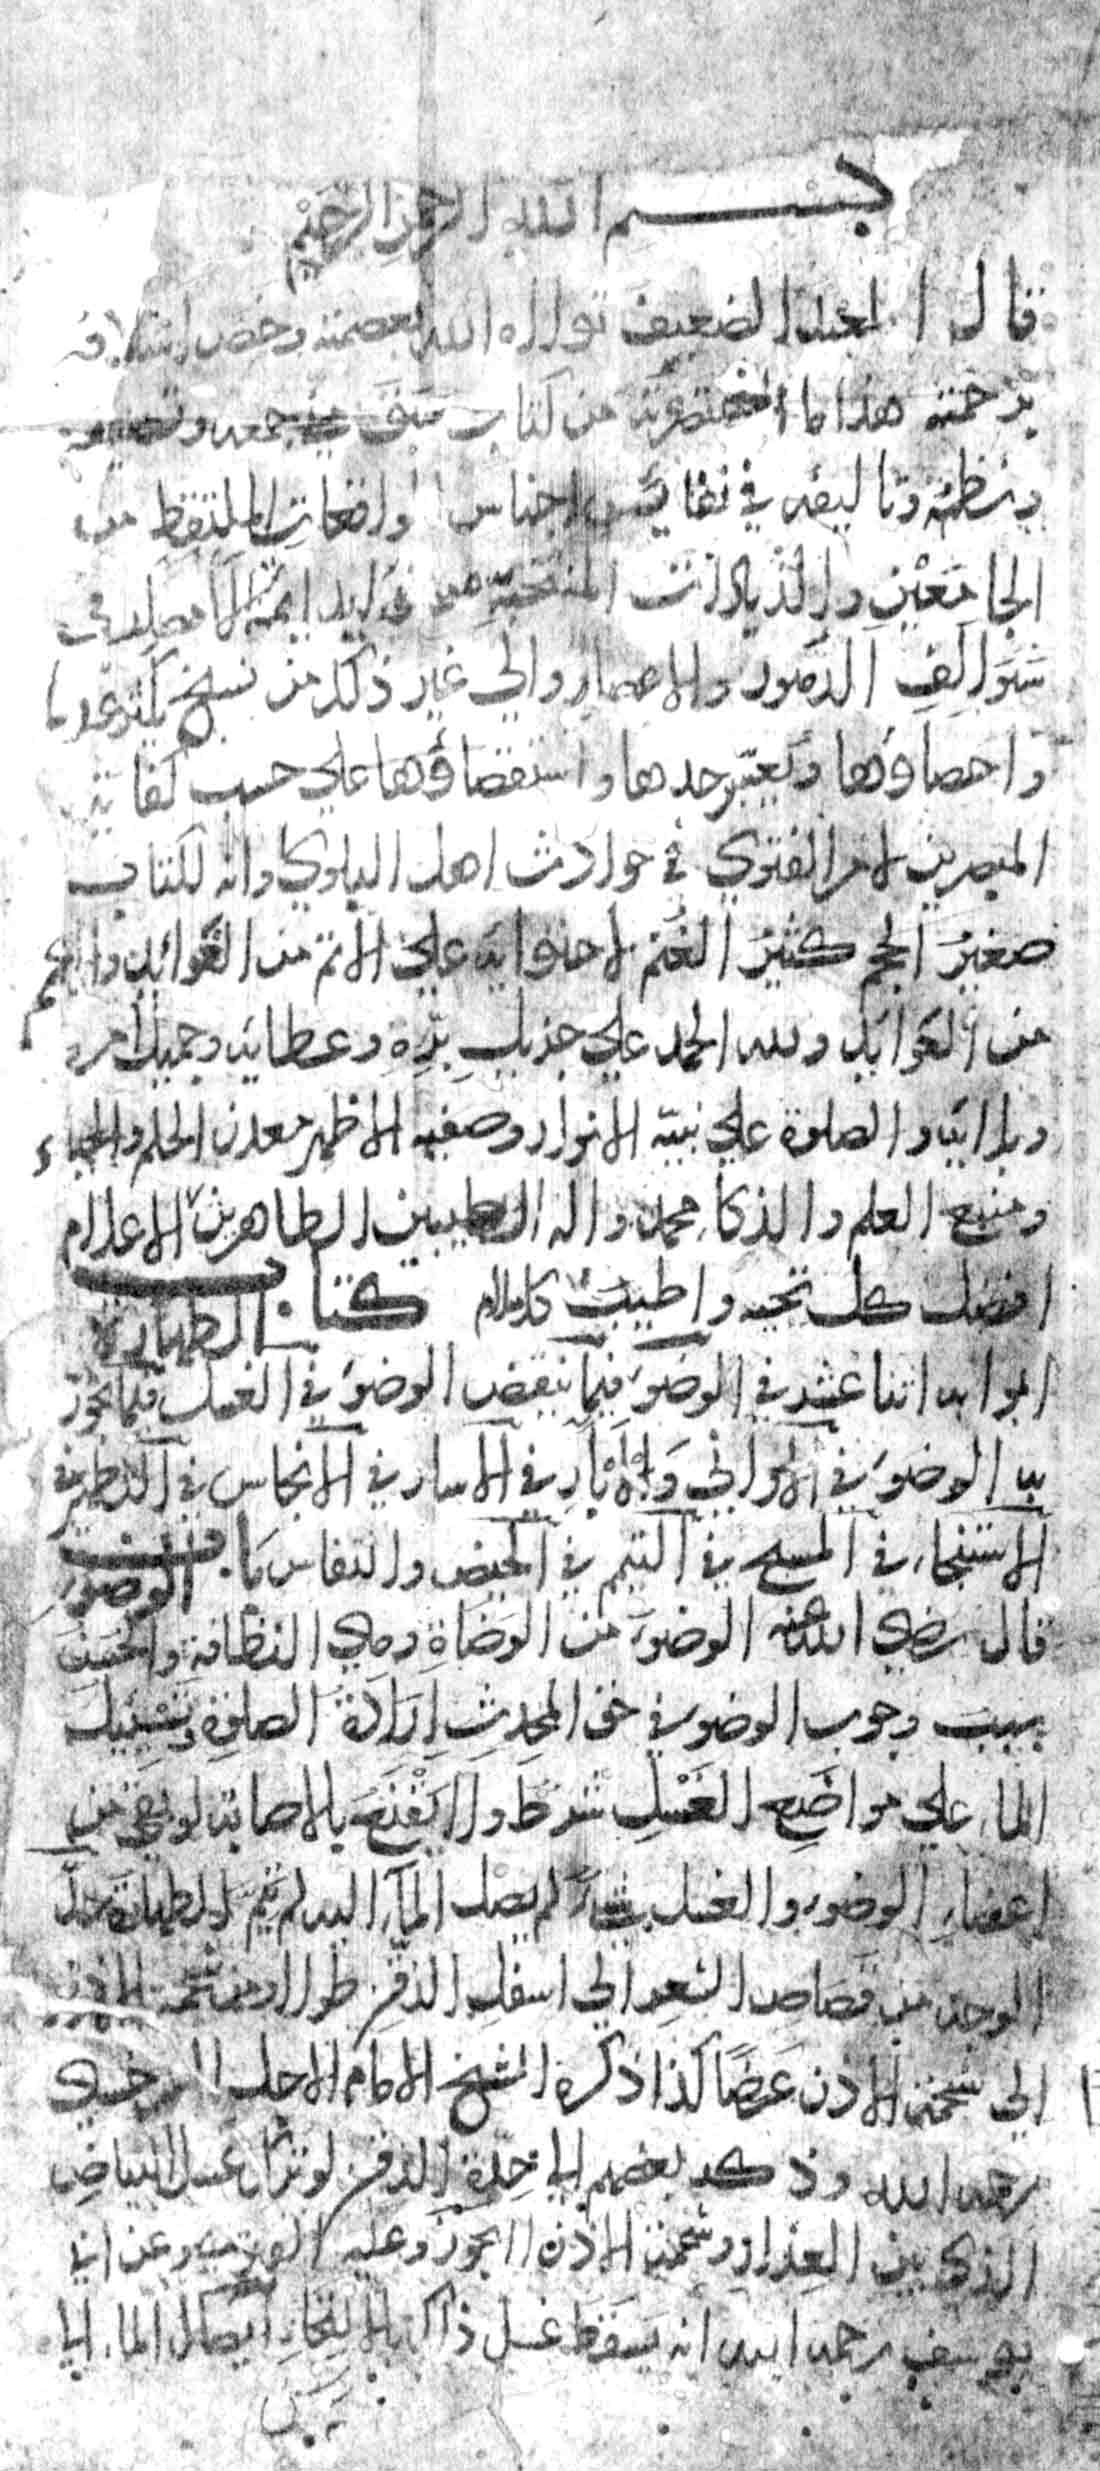 بسم الله الرحمن الرحيم
قال العبد الضعيف تولاه الله بعصمته وخص اسلافه
برحمته هذا ما اختصرته من كتاب سبق مني جمعه وتصنيفه
ونظمه وتاليفه في نفائس اجناس الواقعات الملتقط من
الجامعين والزيادات المنتخبة من فوايد ايمة الامصار في
سوالف الدهور والاعصار والي غير ذلك من نسخ يكثر عدها
واحصاؤها ويعسر حدها واستقصاؤها علي حسب كفاية
المبصرين لامر الفتوي في حوادث اهل البلوي وانه لكتاب
صغير الحجم كثير الغنم لاحتوايه علي الاتم من الفوائد والاعم
من العوايد ولله الحمد علي جزيل بره وعطايه وجميل امره
وبلائه والصلوة علي نبيه الانوار وصفيه الاظهر معدن الحلم والحياء
ومنبع العلم والذكاء محمد واله الطيبين الطاهرين الاعلام
افضل كل تحية واطيب كل سلام كتاب الطهارة
ابوابه اثنا عشر في الوضوء فيما ينقض الوضوء في الغسل فيما يجوز
به الوضوء في الاواني والابار في الاسار في الانجاس في التطهير في
الاستنجاء في المسح في التيمم في الحيض والنفاس باب الوضوء
قال رضي الله عنه الوضوء من الوضاة وهي النظافة والحسن
بسبب وجوب الوضوء في حق المحدث ارادة الصلوة وتسييل
الماء علي مواضع الغسل شرط ولا يقنع بالاصابة لو بقي من
اعضاء الوضوء والغسل شيء لم يصل الماء اليه لم يتم الطهارة حد
الوجه من قصاص الشعر الي اسفل الذقن طولا ومن شحمة الاذن
الي شحمة الاذن عرضا كذا ذكره الشيخ الامام الاجل السرخسي
رحمه الله وذكر بعضهم الي حدة الذقن لو ترك غسل البياض
الذي بين العذار وشحمة الاذن لا يجوز وعليه الفتوي وعن ابي
يوسف رحمه الله انه يسقط غسل ذلك بالالتحاء ايصال الماء الي